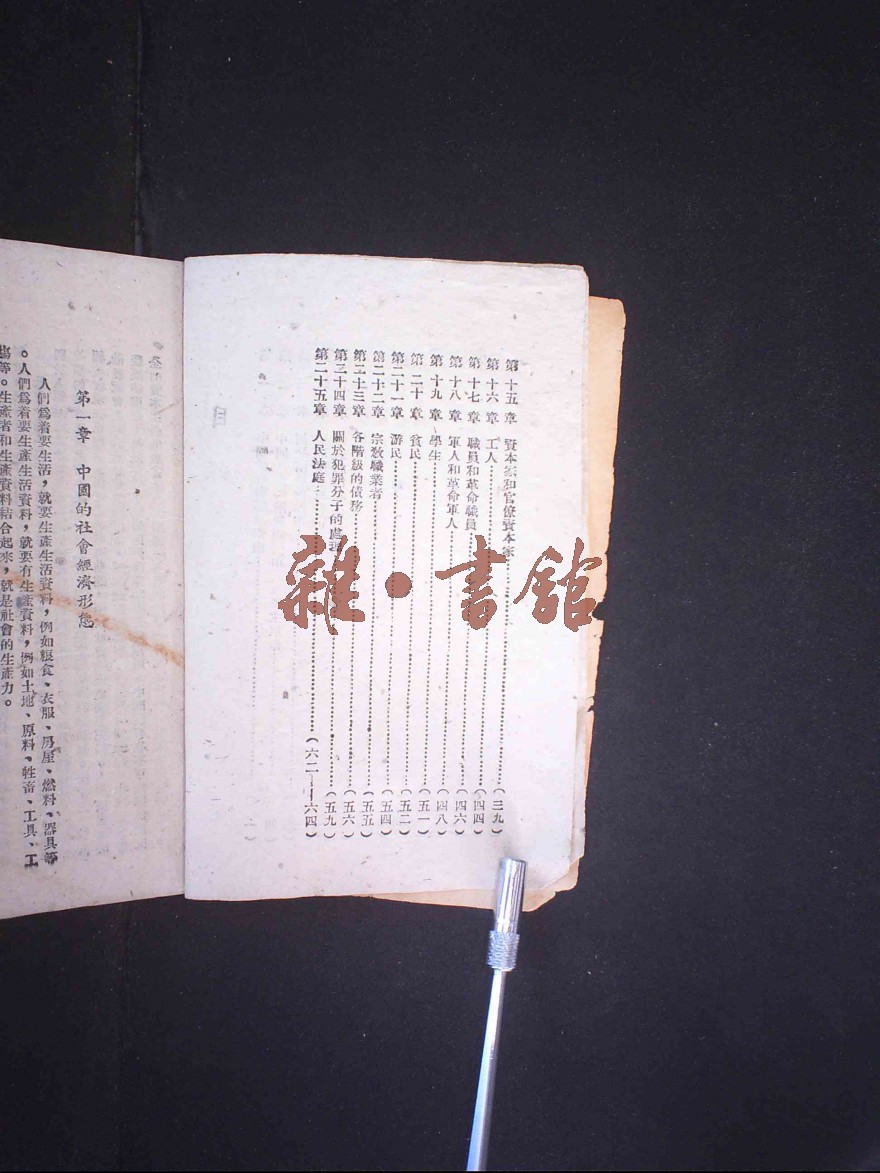 第十五章 資本家和官僚資本家（三九）
第十六章 工人（四四）
第十七章 職員和革命職員（四四）
第十八章 軍人和革命軍人（四六）
第十九章 學生（四八）
第二十章 貧民（五一）
第二十一章 游民（五二）
第二十二章 宗教職業者（五四）
第二十三章 各階級的債務（五五）
第二十四章 關於犯罪分子的處理（五六）
第二十五章 人民法庭（五九）
（六二——六四）
雜·書館
第一章 中國的社會經濟形態
人們爲着要生活，就要生產生活資料，例如糧食、衣服、房屋、燃料、器具等
。人們爲着要生產生活資料，就要有生產資料，例如土地、原料、牲畜、工具、工
塲等。生產者和生產資料結合起來，就是社會的生產力。